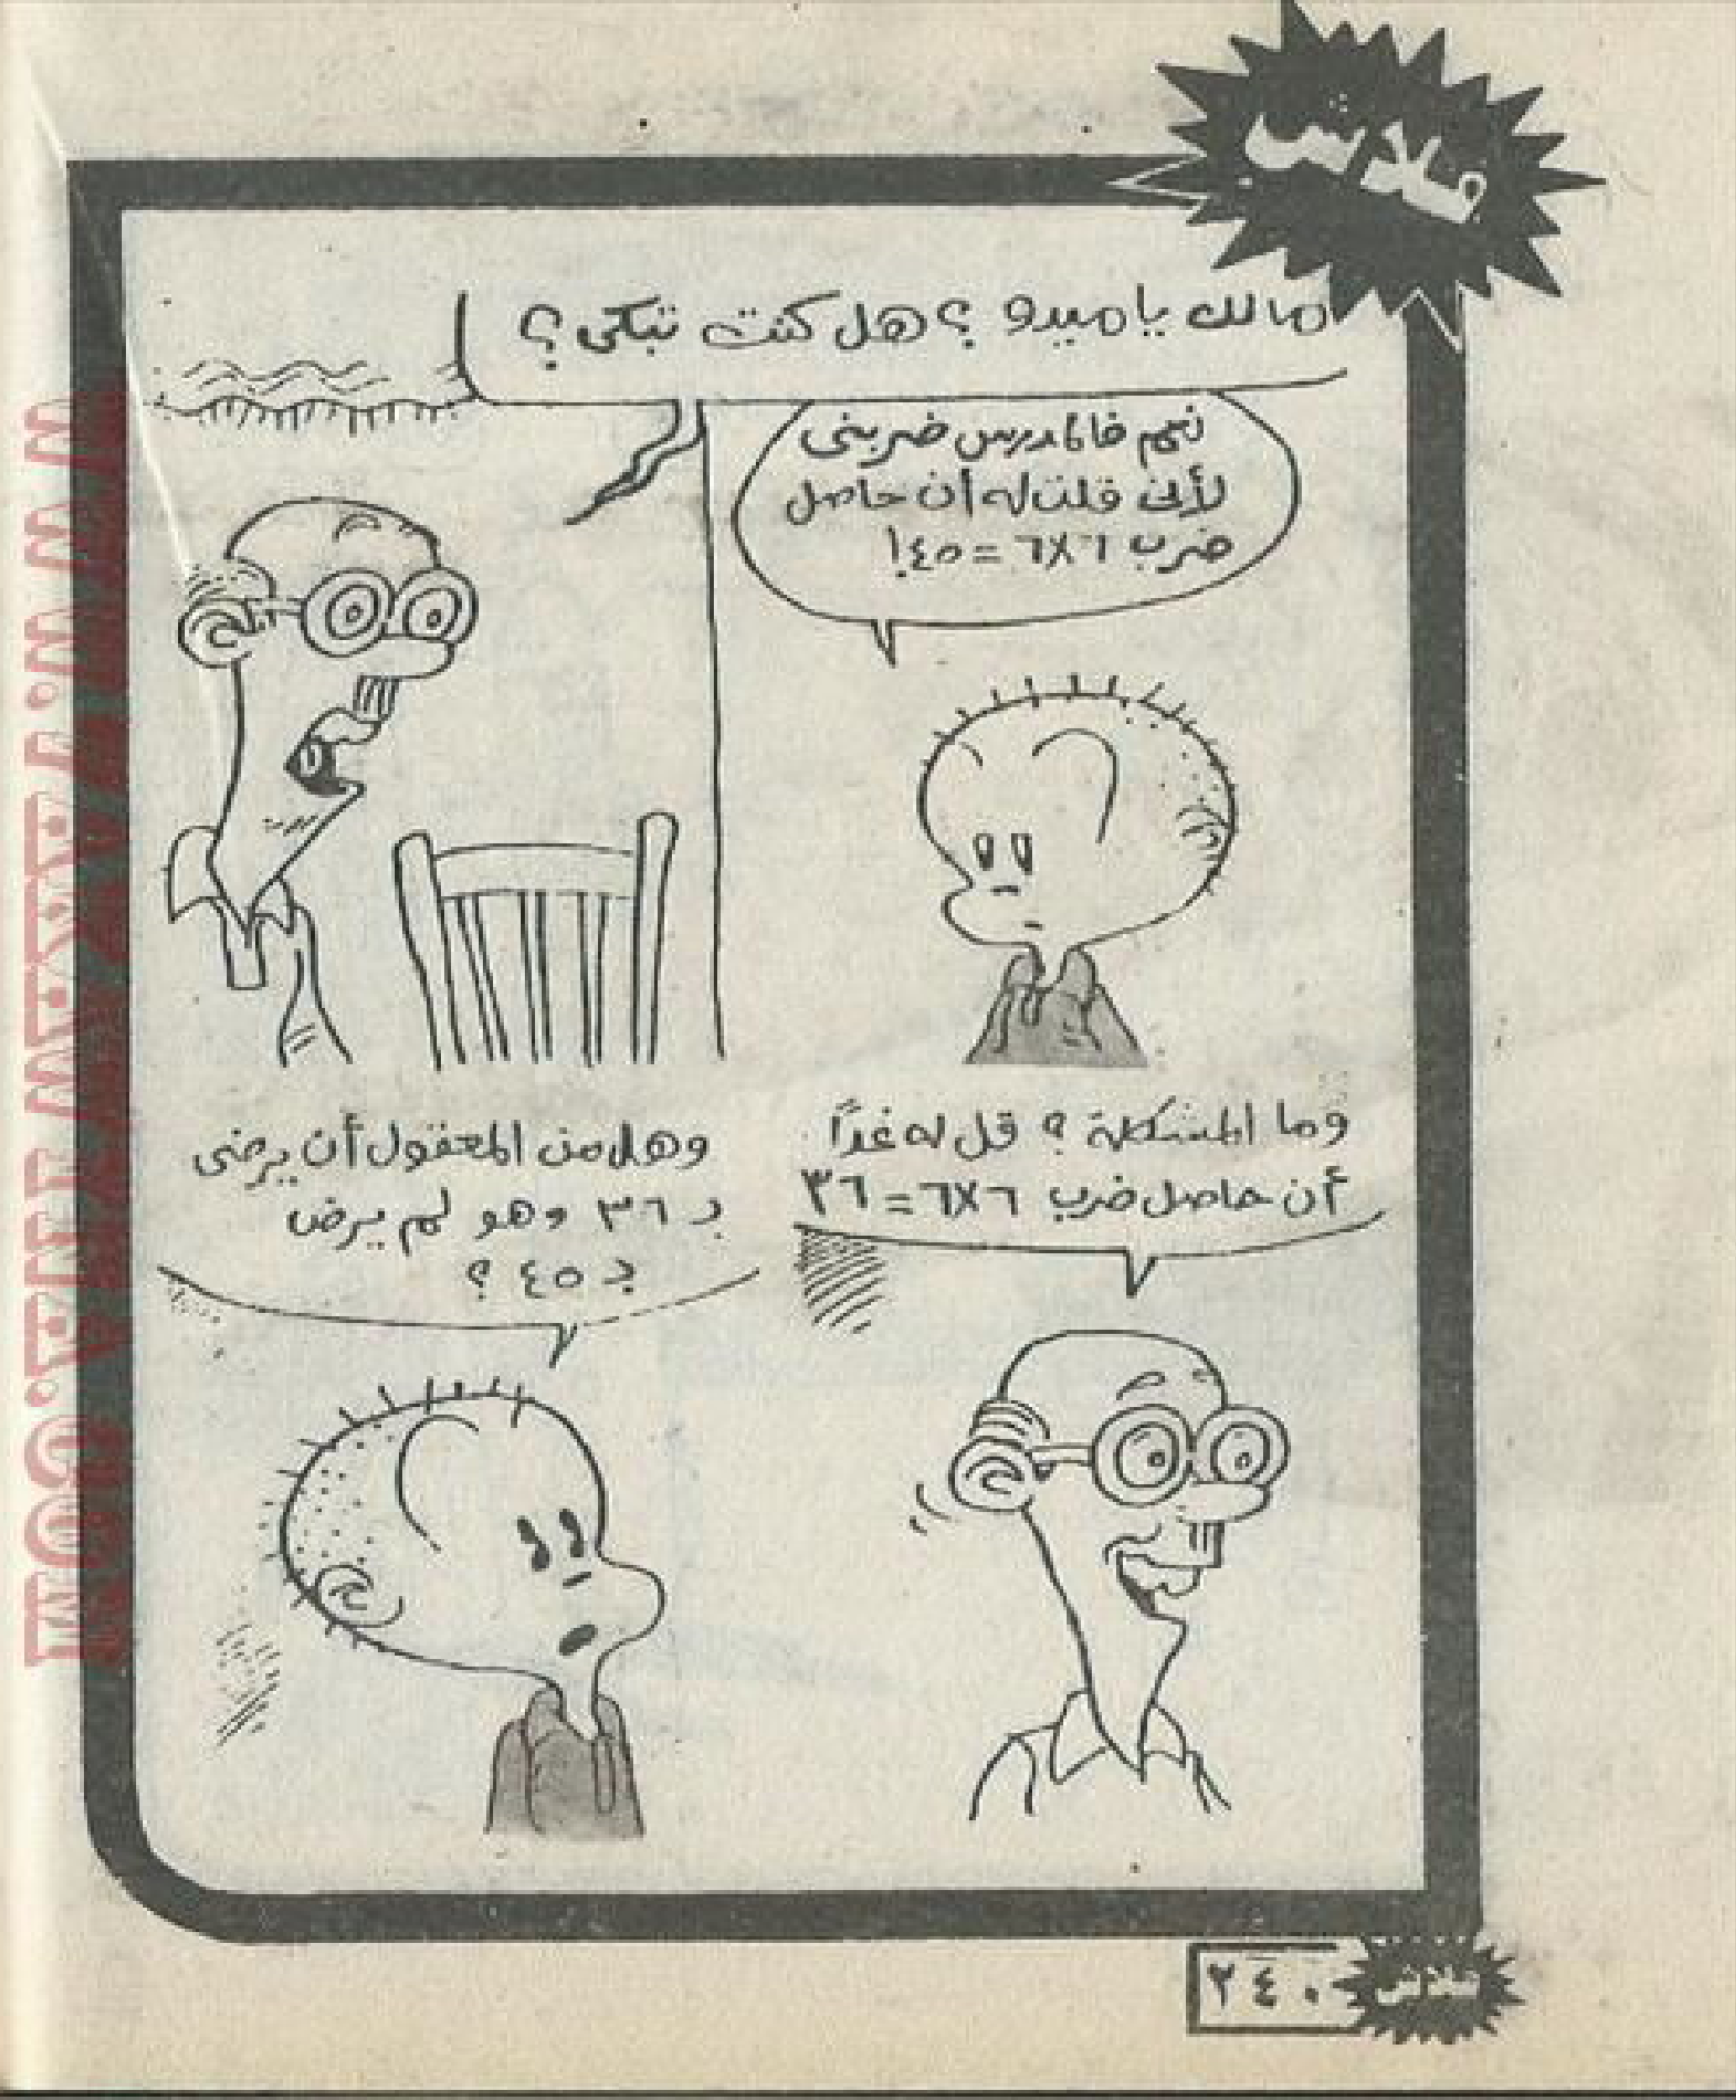 فلاش
مالك ياميدو ؟ هل كنت تبكى ؟
نعم فالمدرس ضربنى
لأنى قلت له أن حاصل
ضرب ٦x٦ = ٤٥!
وما المشكلة ؟ قل له غداً
أن حاصل ضرب ٦x٦ = ٣٦
وهل من المعقول أن يرضى
بـ ٣٦ وهو لم يرض
بـ ٤٥ ؟
٢٤٠
فلاش